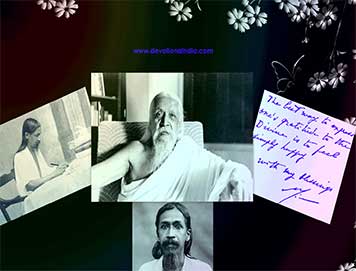 www.devotionalindia.com
The best way to express
one's gratitude to the
Divine is to feel
simply happy
with my blessings